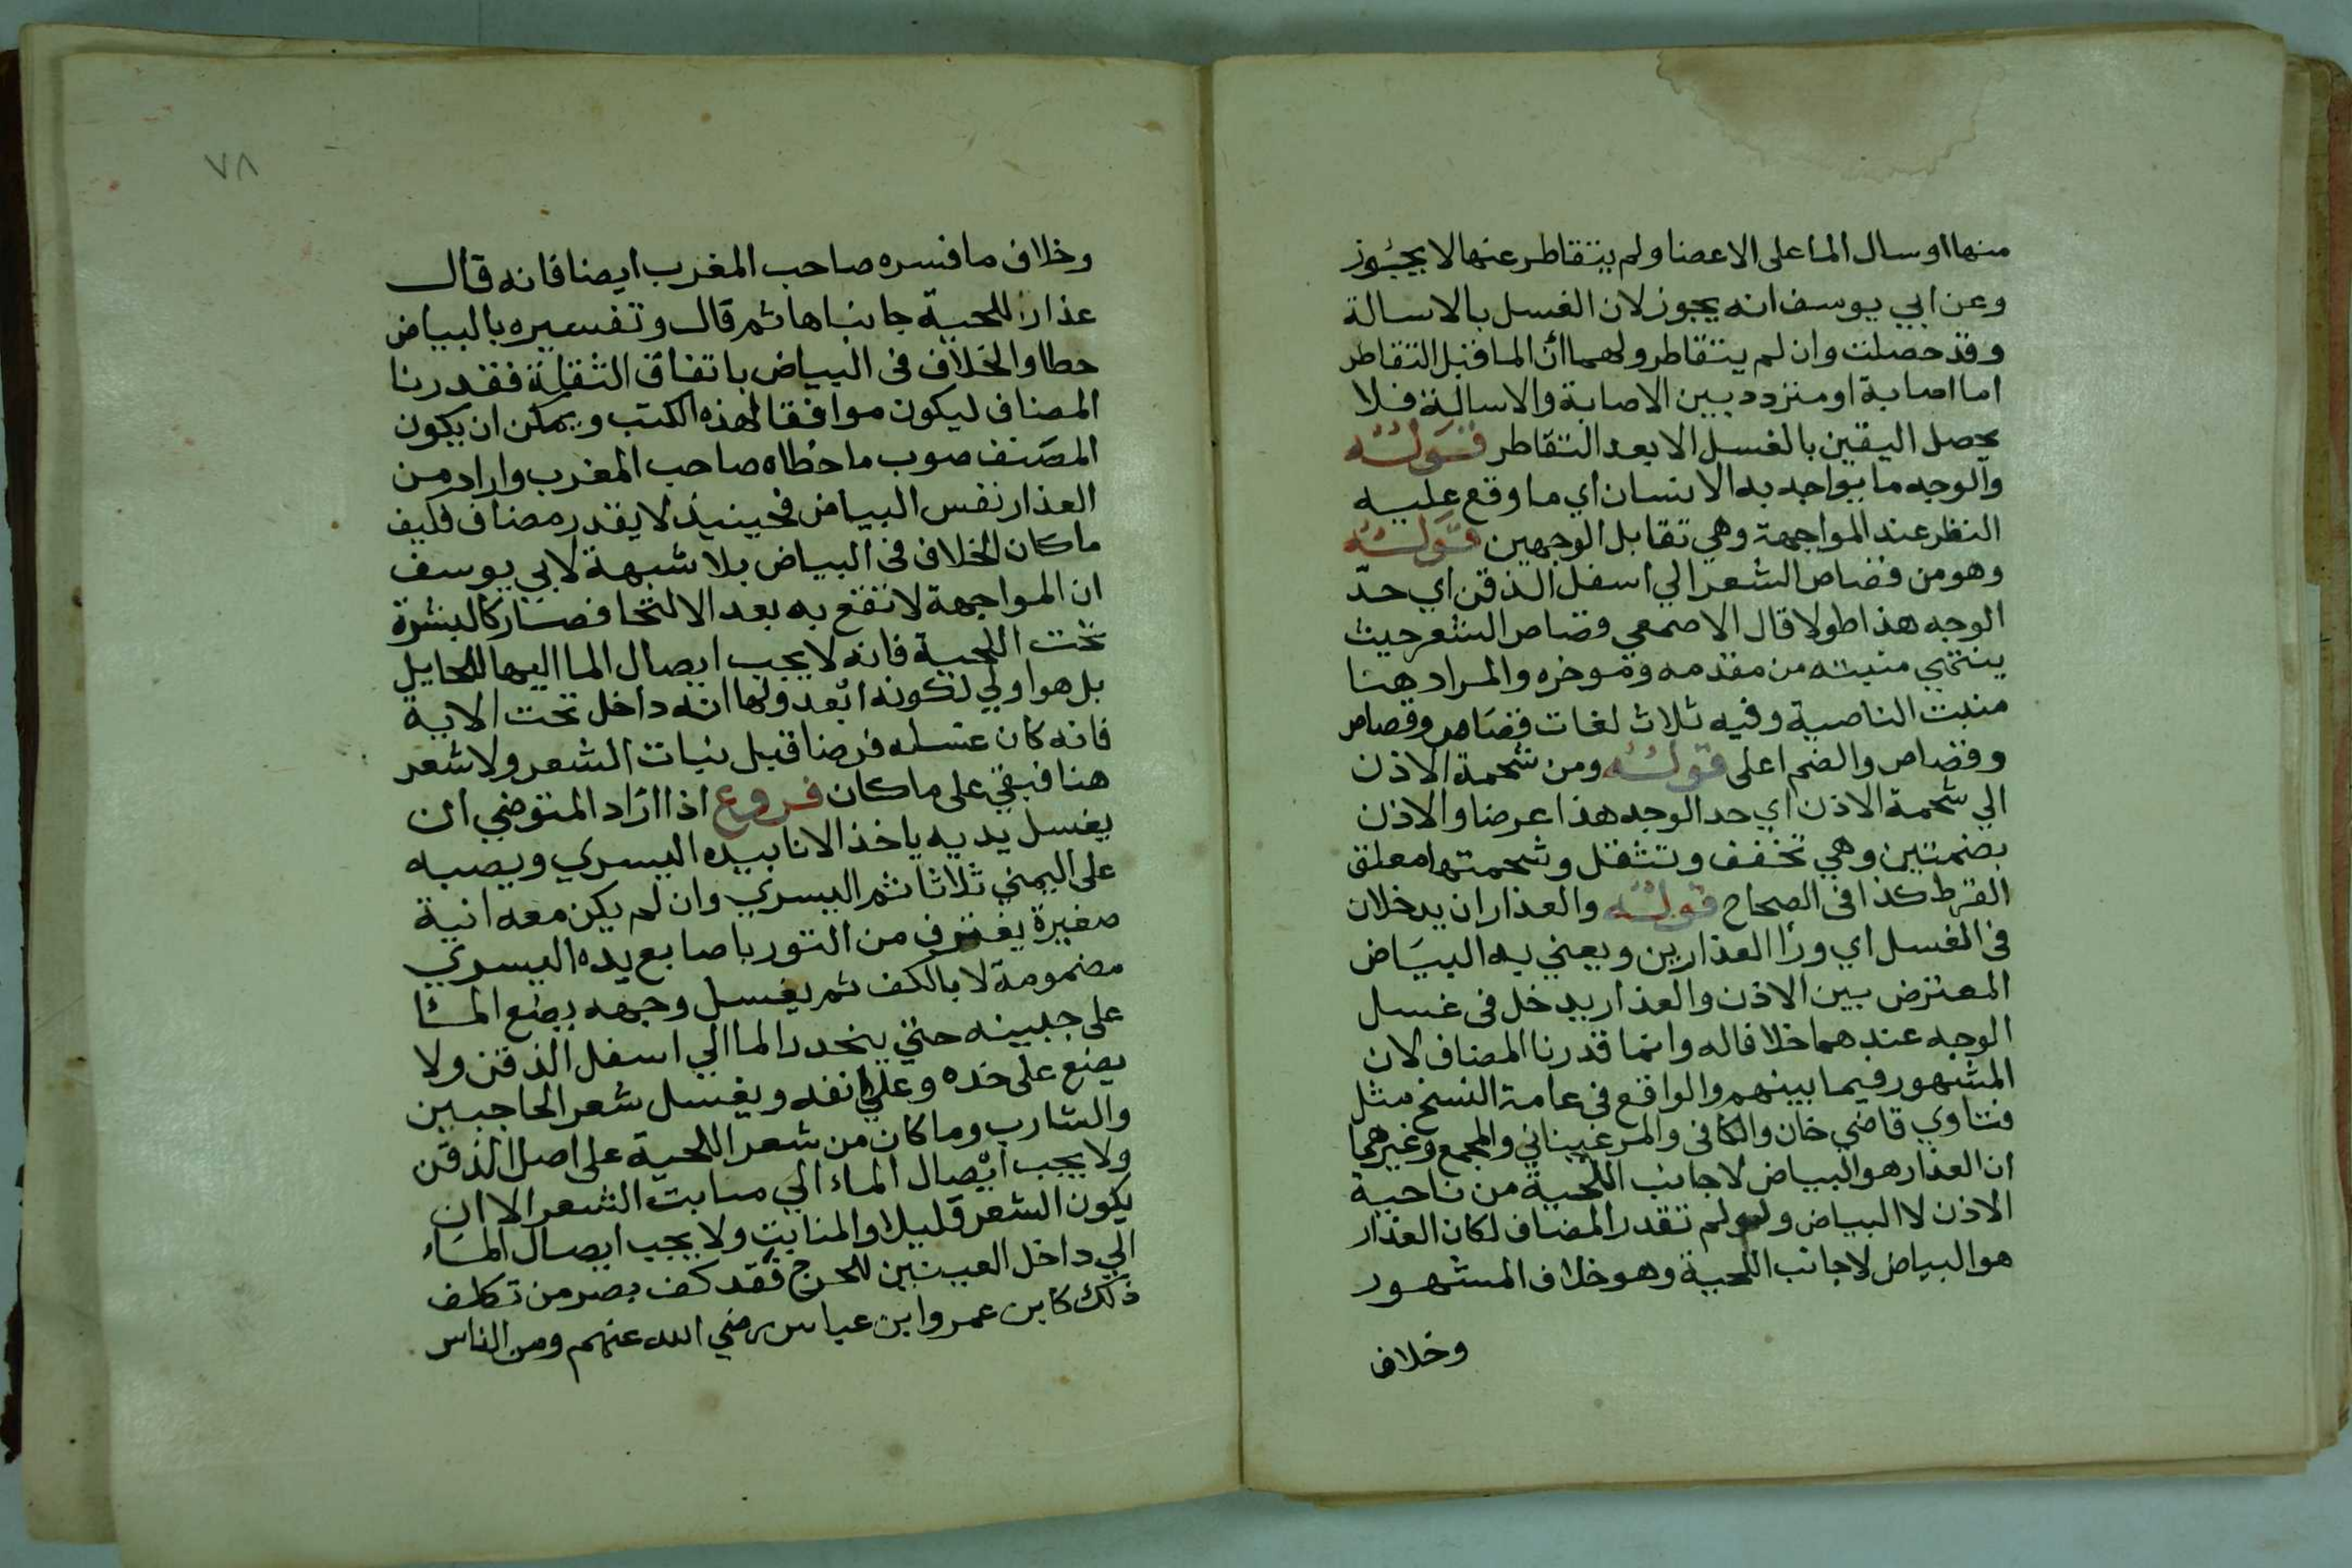 منها او سال الما على الاعضا ولم يتقاطر عنها لا يجوز
وعن ابي يوسف انه يجوز لان الغسل بالاسالة
وقد حصلت وان لم يتقاطر ولهما ان الما قبل التقاطر
اما اصابة او متردد بين الاصابة والاسالة فلا
يحصل اليقين بالغسل الا بعد التقاطر قوله
والوجه ما يواجه به الانسان اي ما وقع عليه
النظر عند المواجهة وهي تقابل الوجهين قوله
وهو من قصاص الشعر الي اسفل الذقن اي حد
الوجه هذا طولا قال الاصمعي قصاص الشعر حيث
ينتهي منبته من مقدمه وموخره والمراد هنا
منبت الناصية وفيه ثلاث لغات قصاص وقصاص
وقصاص والضم اعلى قوله ومن شحمة الاذن
الي شحمة الاذن اي حد الوجه هذا عرضا والاذن
بضمتين وهي تخفف وتثقل وشحمتها معلق
القرط كذا في الصحاح قوله والعذاران يدخلان
في الغسل اي ورا العذارين ويعني به البياض
المعترض بين الاذن والعذار يدخل في غسل
الوجه عندهما خلافا له وانما قدرنا المضاف لان
المشهور فيما بينهم والواقع في عامة النسخ مثل
فتاوي قاضي خان والكافي والمرغيناني والمجمع وغيرهما
ان العذار هو البياض لا جانب اللحية من ناحية
الاذن لا البياض ولو لم تقدر المضاف لكان العذار
هو البياض لا جانب اللحية وهو خلاف المشهور
وخلاف
٧٨
وخلاف ما فسره صاحب المغرب ايضا فانه قال
عذار اللحية جانباها ثم قال وتفسيره بالبياض
خطا والخلاف في البياض باتفاق النقلة فقدرنا
المضاف ليكون موافقا لهذه الكتب ويمكن ان يكون
المصنف صوب ما خطاه صاحب المغرب واراد من
العذار نفس البياض فحينيذ لا يقدر مضاف فكيف
ما كان الخلاف في البياض بلا شبهة لابي يوسف
ان المواجهة لا تقع به بعد الالتحا فصار كالبشرة
تحت اللحية فانه لا يجب ايصال الما اليها للحايل
بل هو اولي لكونه ابعد ولهما انه داخل تحت الاية
فانه كان غسله فرضا قبل نبات الشعر ولا شعر
هنا فبقي على ما كان فروع اذا اراد المتوضي ان
يغسل يديه ياخذ الانا بيده اليسري ويصبه
على اليمني ثلاثا ثم اليسري وان لم يكن معه انية
صغيرة يغترف من التور باصابع يده اليسري
مضمومة لا بالكف ثم يغسل وجهه يضع الما
على جبينه حتي ينحدر الما الي اسفل الذقن ولا
يضع على خده وعلي انفه ويغسل شعر الحاجبين
والشارب وما كان من شعر اللحية على اصل الذقن
ولا يجب ايصال الماء الي منابت الشعر الا ان
يكون الشعر قليلا والمنابت ولا يجب ايصال الماء
الي داخل العينين للحرج فقد كف بصر من تكلف
ذلك كابن عمر وابن عباس رضي الله عنهم ومن الناس